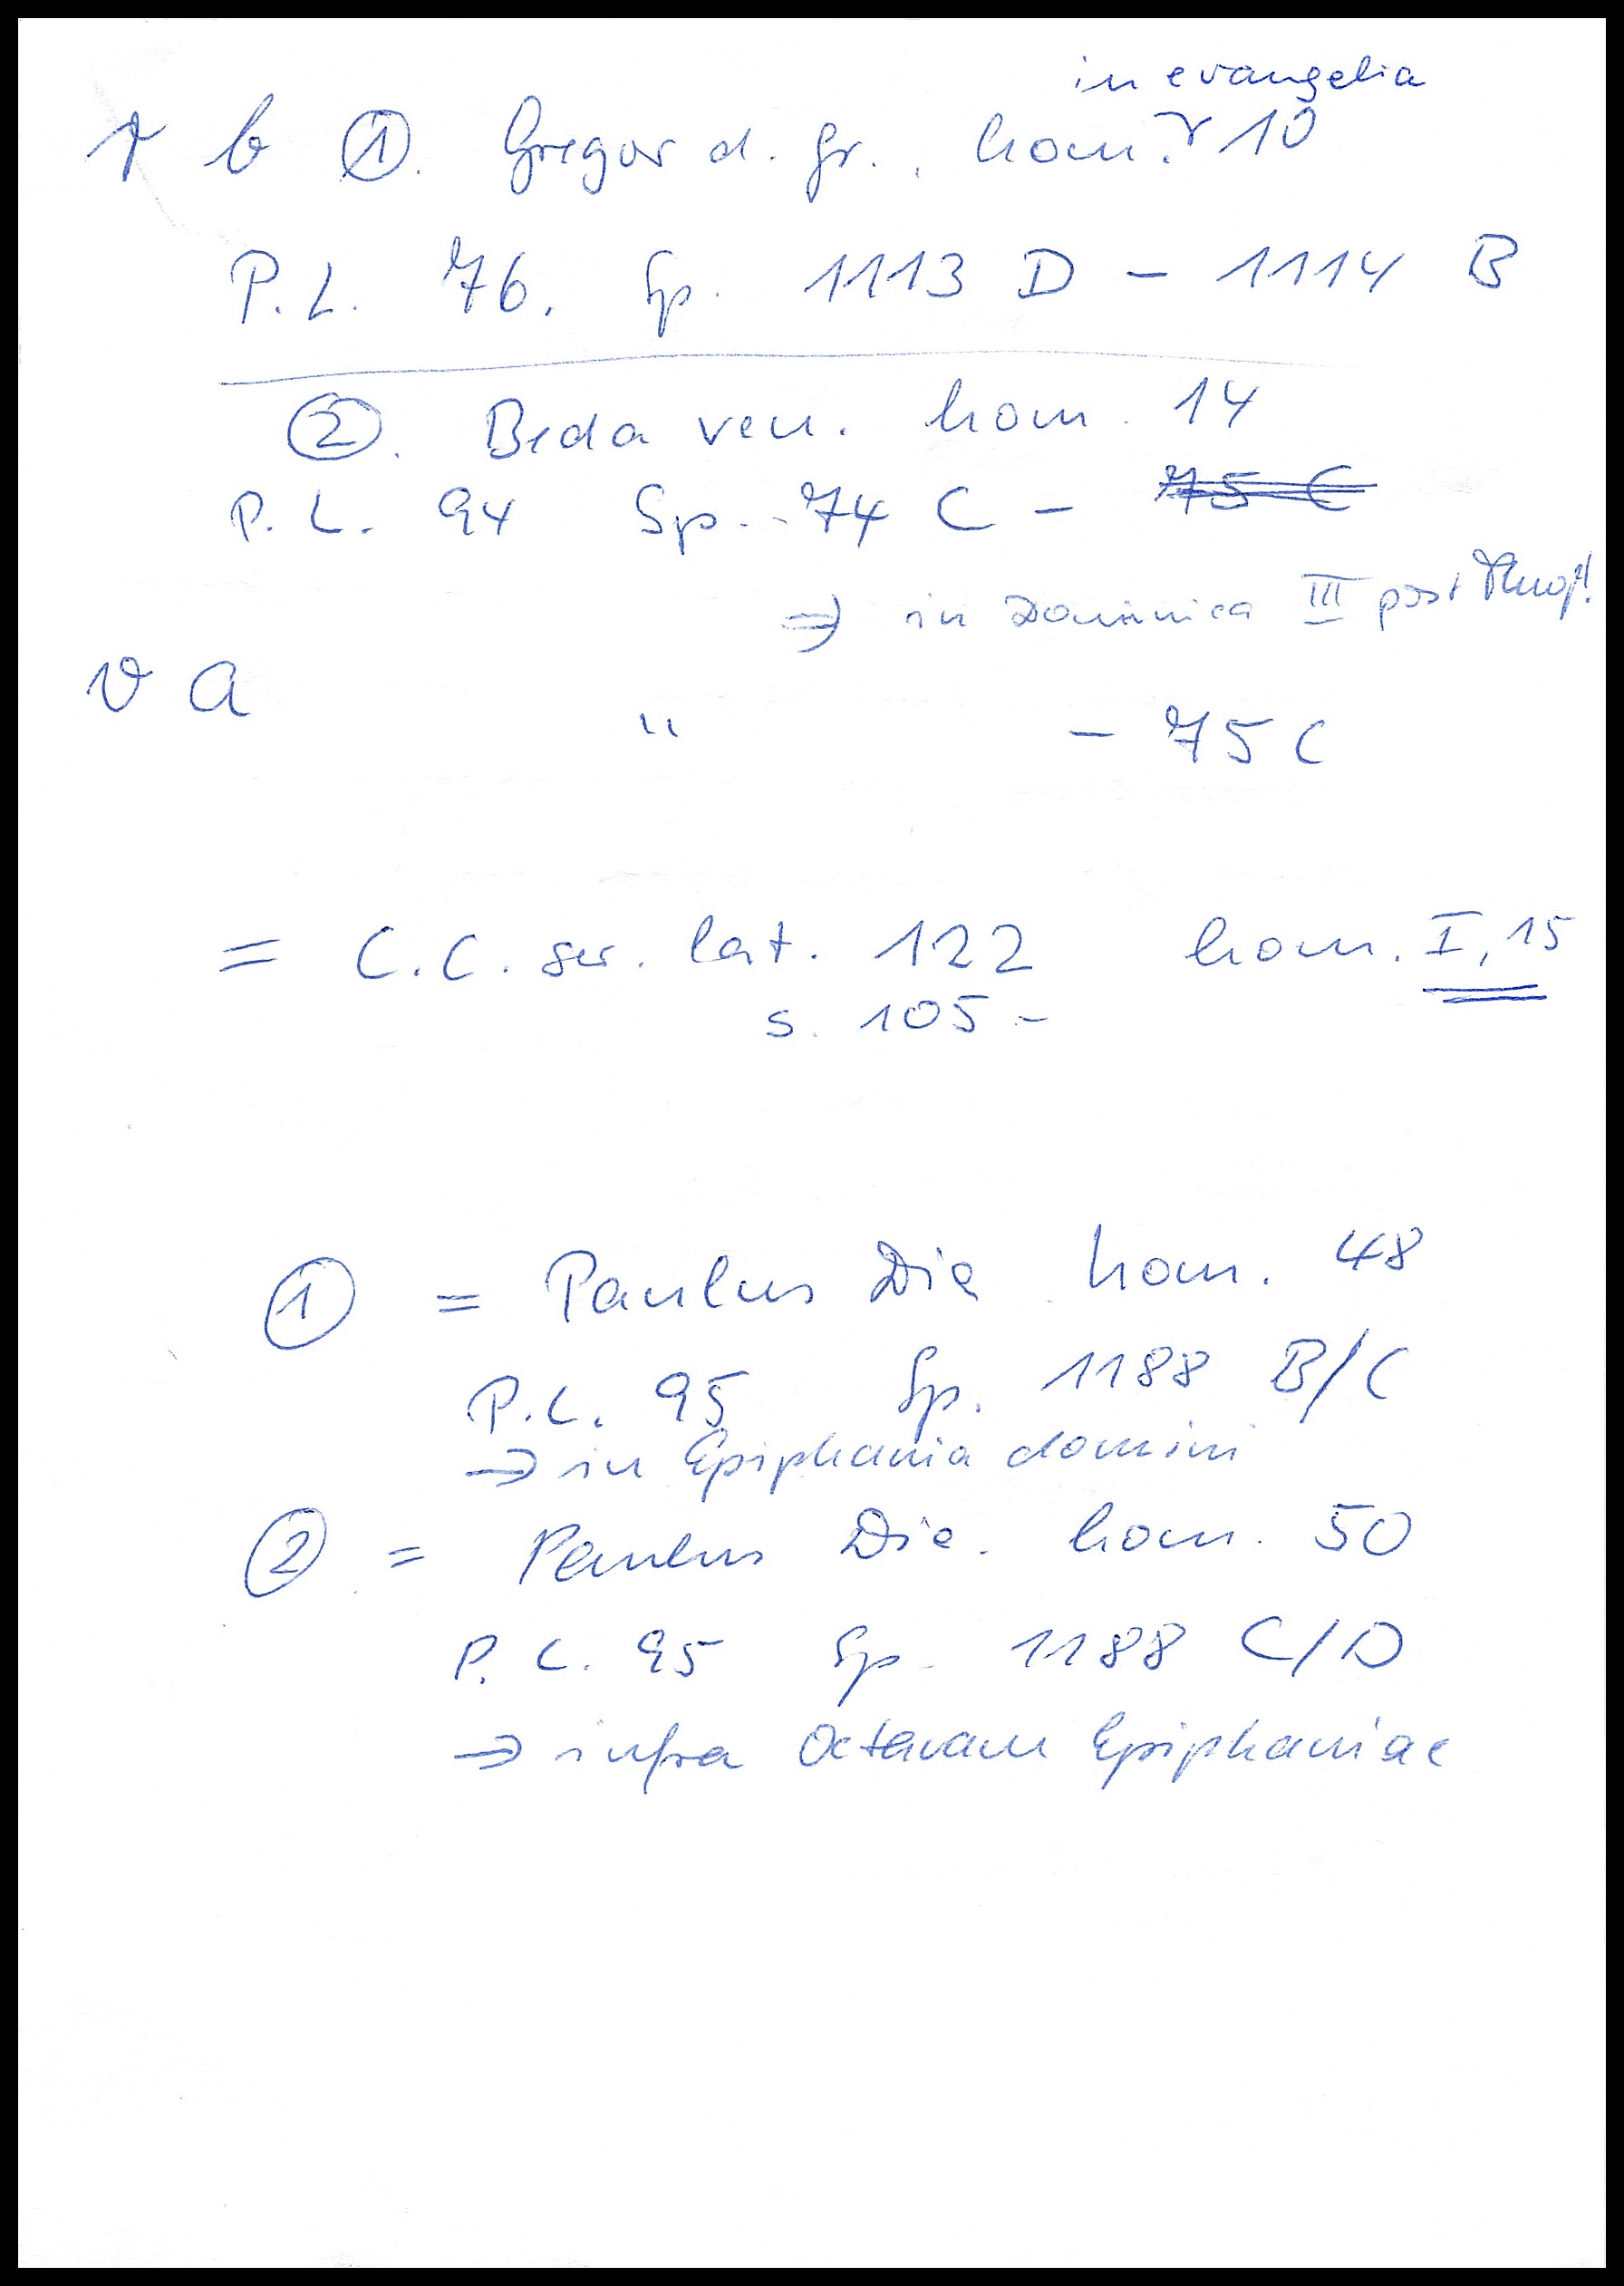 in evangelia
r b ①. Gregor d. Gr., hom. 10
P.L. 76. Sp. 1113 D - 1114 B
②. Beda ven. hom. 14
P.L. 94 Sp. 74 C - 75 C
⇒ in Dominica III post
v a
" - 75 C
= C.C. ser. lat. 122 hom. I, 15
S. 105 -
① = Paulus Dia. hom. 48
P.L. 95 Sp. 1188 B/C
→ in Epiphania domini
② = Paulus Dia. hom. 50
P.L. 95 Sp. 1188 C/D
→ infra Octavam Epiphaniae